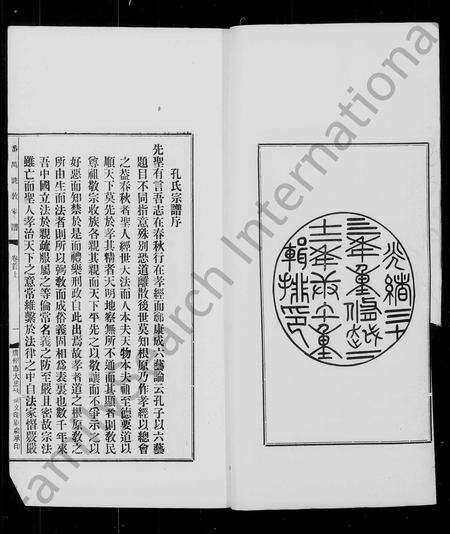 光緒三十
三年重修至
十二年
重
輯排印
孔氏宗譜序
先聖有言吾志在春秋行在孝經而鄭康成六藝論云孔子以六藝
題目不同指意殊別恐道離散後世莫知根原乃作孝經以總會
之蓋春秋者聖人經世大法而人本夫天物本夫祖至德要道以
順天下莫先於孝其精者天明地察無所不通而其顯者則教民
尊祖敬宗收族各親其親而天下平先之以敬讓而不爭示之以
好惡而知禁於是而禮樂刑政自此出焉故孝者道之根原教之
所由生而法者則所以弼教而成俗義固相為表裏也數千年來
吾中國立法於親疏服屬之等倫常名義之防至嚴且密故宗法
雖亡而聖人孝治天下之意常維繫於法律之中自法家慴嚴嚴
番禺詵敦家譜
卷首
一
Research International